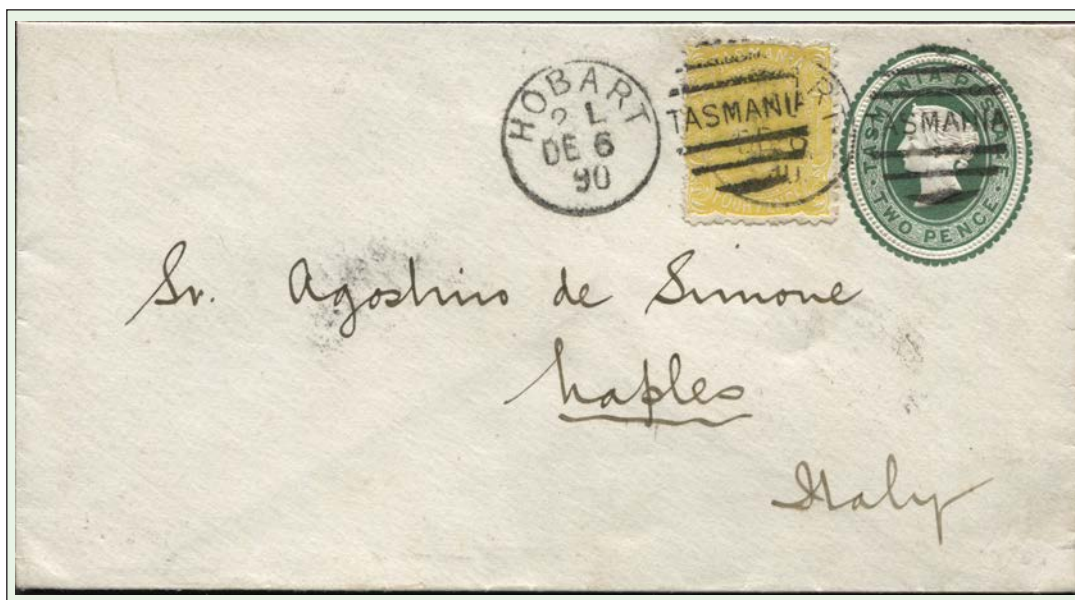 HOBART
2 L
DE 6
90
TASMANIA
TASMANIA
TASMANIA POSTAGE
TWO PENCE
Sr. Agostino de Simone
Naples
Italy